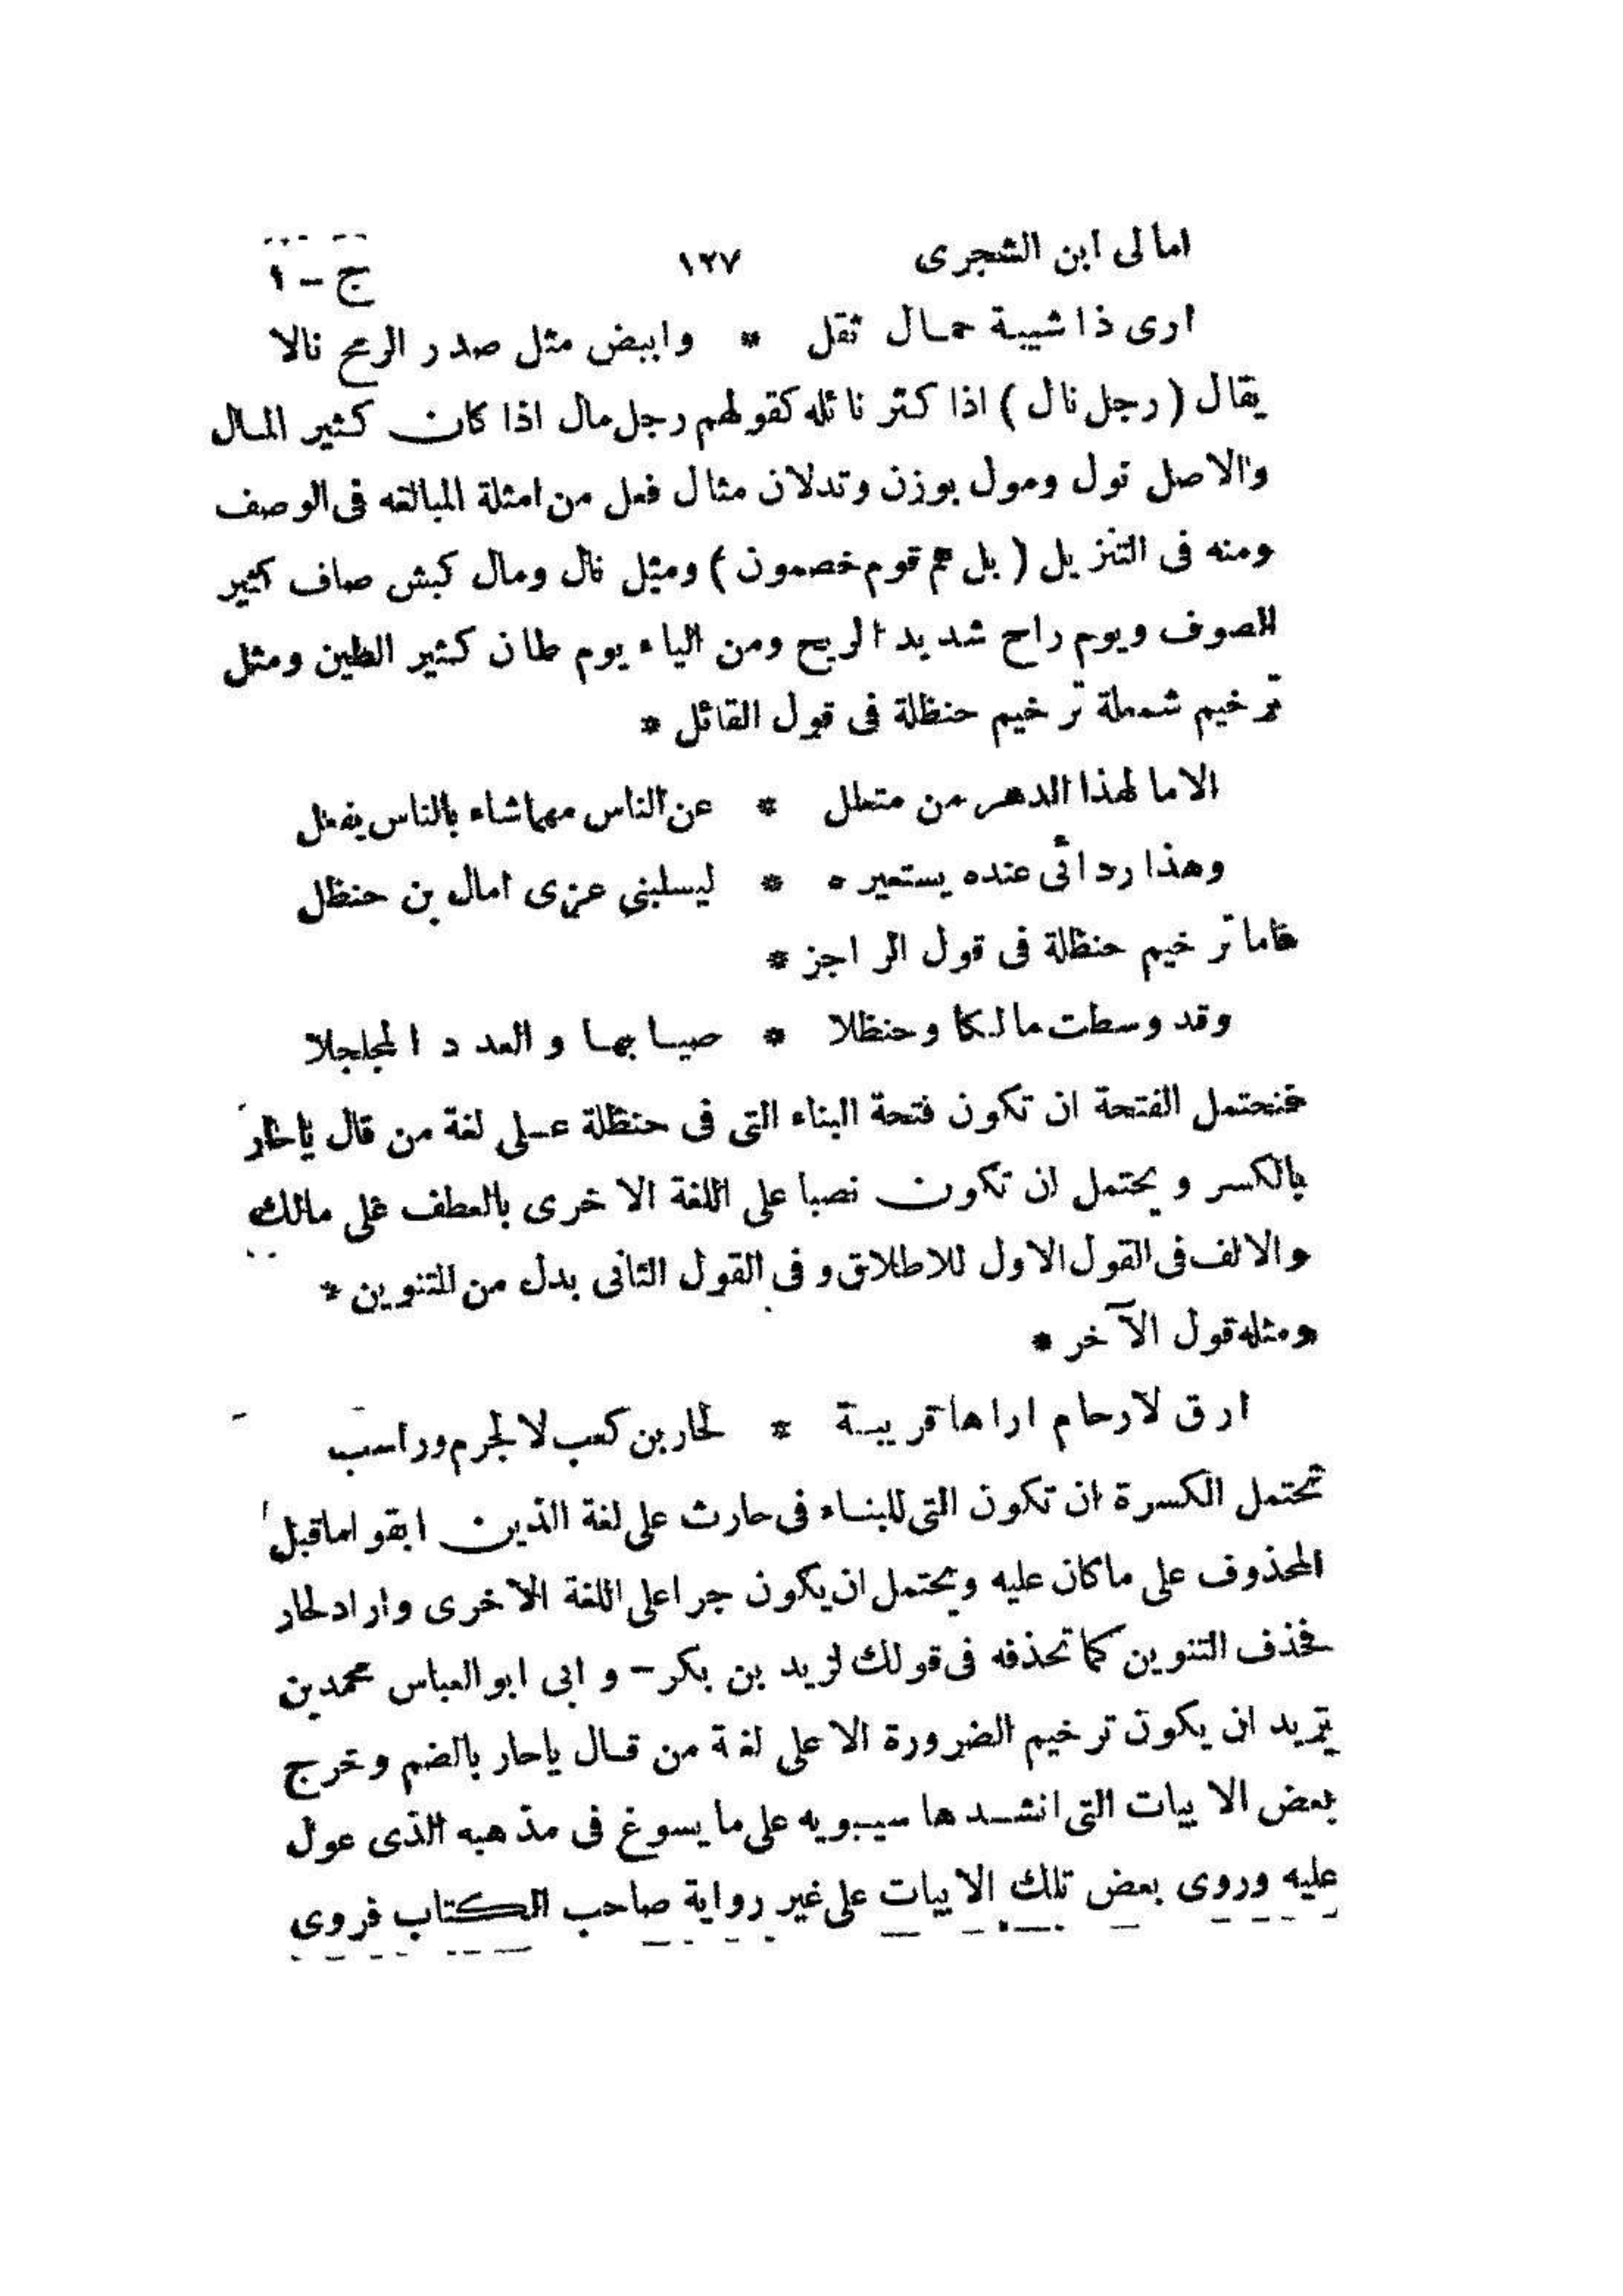 امالى ابن الشجرى ١٢٧ ج – ١
ارى ذا شيبة حمال ثقل * وابيض مثل صدر الرمح نالا
يقال (رجل نال) اذا كثر نائله كقولهم رجل مال اذا كان كثير المال
والاصل نول ومول بوزن وتدلان مثال فعل من امثلة المبالغه فى الوصف
ومنه فى التنزيل (بل هم قوم خصمون) ومثل نال ومال كبش صاف كثير
الصوف ويوم راح شديد الريح ومن الياء يوم طان كثير الطين ومثل
ترخيم شملة ترخيم حنظلة فى قول القائل *
الا ما لهذا الدهر من متعلل * عن الناس مهما شاء بالناس يفعل
وهذا ردائى عنده يستعيره * ليسلبنى عزى امال بن حنظل
فاما ترخيم حنظلة فى قول الراجز *
وقد وسطت مالكا وحنظلا * صيابها والعدد المجلجلا
فتحتمل الفتحة ان تكون فتحة البناء التى فى حنظلة على لغة من قال ياحار
بالكسر ويحتمل ان تكون نصبا على اللغة الاخرى بالعطف على مالك
والالف فى القول الاول للاطلاق وفى القول الثانى بدل من التنوين *
ومثله قول الآخر *
ارق لارحام اراها قريبة * لحار بن كعب لا لجرم وراسب
تحتمل الكسرة ان تكون التى للبناء فى حارث على لغة الذين ابقوا ماقبل
المحذوف على ماكان عليه ويحتمل ان يكون جرا على اللغة الاخرى واراد لحار
فحذف التنوين كما تحذفه فى قولك لزيد بن بكر – وابى ابو العباس محمد بن
يزيد ان يكون ترخيم الضرورة الا على لغة من قال ياحار بالضم وخرج
بعض الابيات التى انشدها سيبويه على ما يسوغ فى مذهبه الذى عول
عليه وروى بعض تلك الابيات على غير رواية صاحب الكتاب فروى